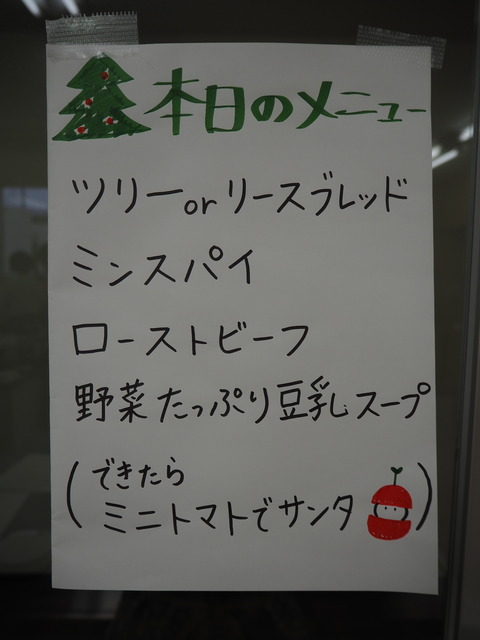 本日のメニュー
ツリーorリースブレッド
ミンスパイ
ローストビーフ
野菜たっぷり豆乳スープ
(できたら
ミニトマトでサンタ)